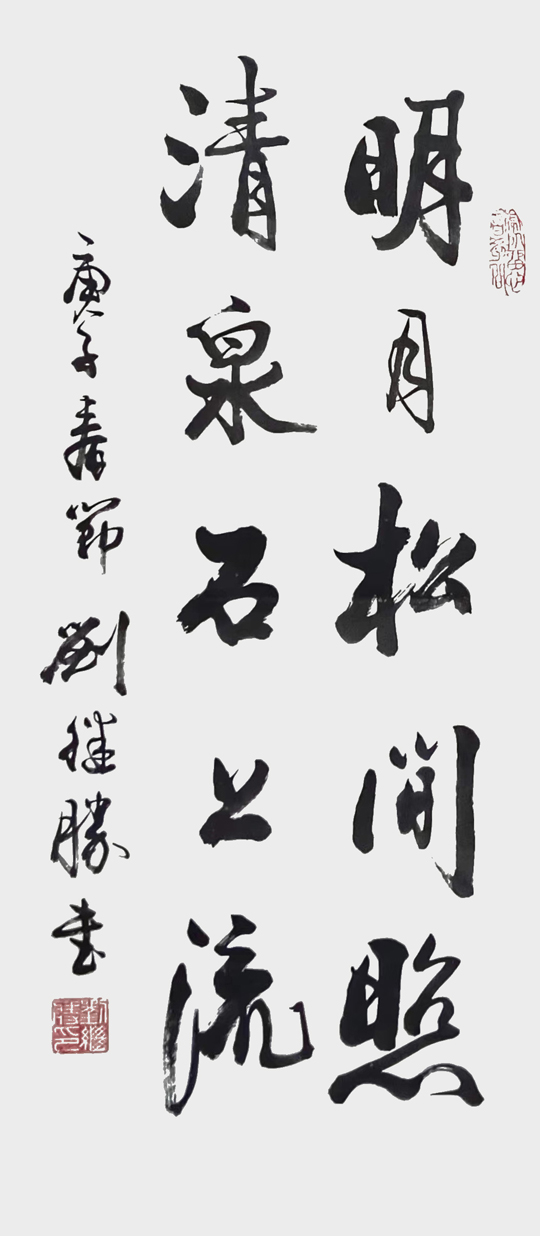 明月松間照
清泉石上流
庚子春節劉繼勝書